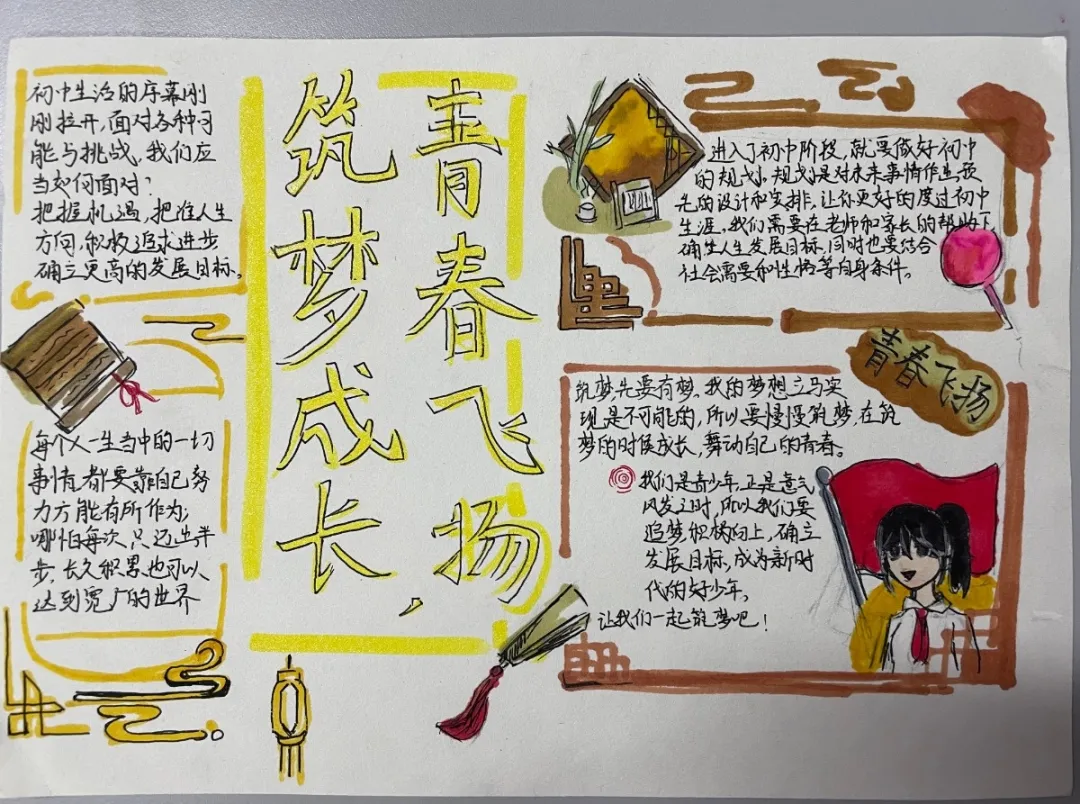 青春飞扬,
筑梦成长
初中生活的序幕刚
刚拉开,面对各种可
能与挑战,我们应
当如何面对?
把握机遇,把准人生
方向,积极追求进步
确立更高的发展目标。
每个人一生当中的一切
事情都要靠自己努
力方能有所作为;
哪怕每次只迈出半
步,长久积累也可以
达到宽广的世界
进入了初中阶段,就要做好初中
的规划。规划是对未来事情作出预
先的设计和安排,让你更好的度过初中
生涯。我们需要在老师和家长的帮助下
确定人生发展目标,同时也要结合
社会需要和性情等自身条件。
青春飞扬
筑梦先要有梦。我的梦想立马实
现是不可能的,所以要慢慢筑梦,在筑
梦的时候成长,舞动自己的青春。
我们是青少年,正是意气
风发之时,所以我们要
追梦,积极向上,确立
发展目标,成为新时
代的好少年。
让我们一起筑梦吧!